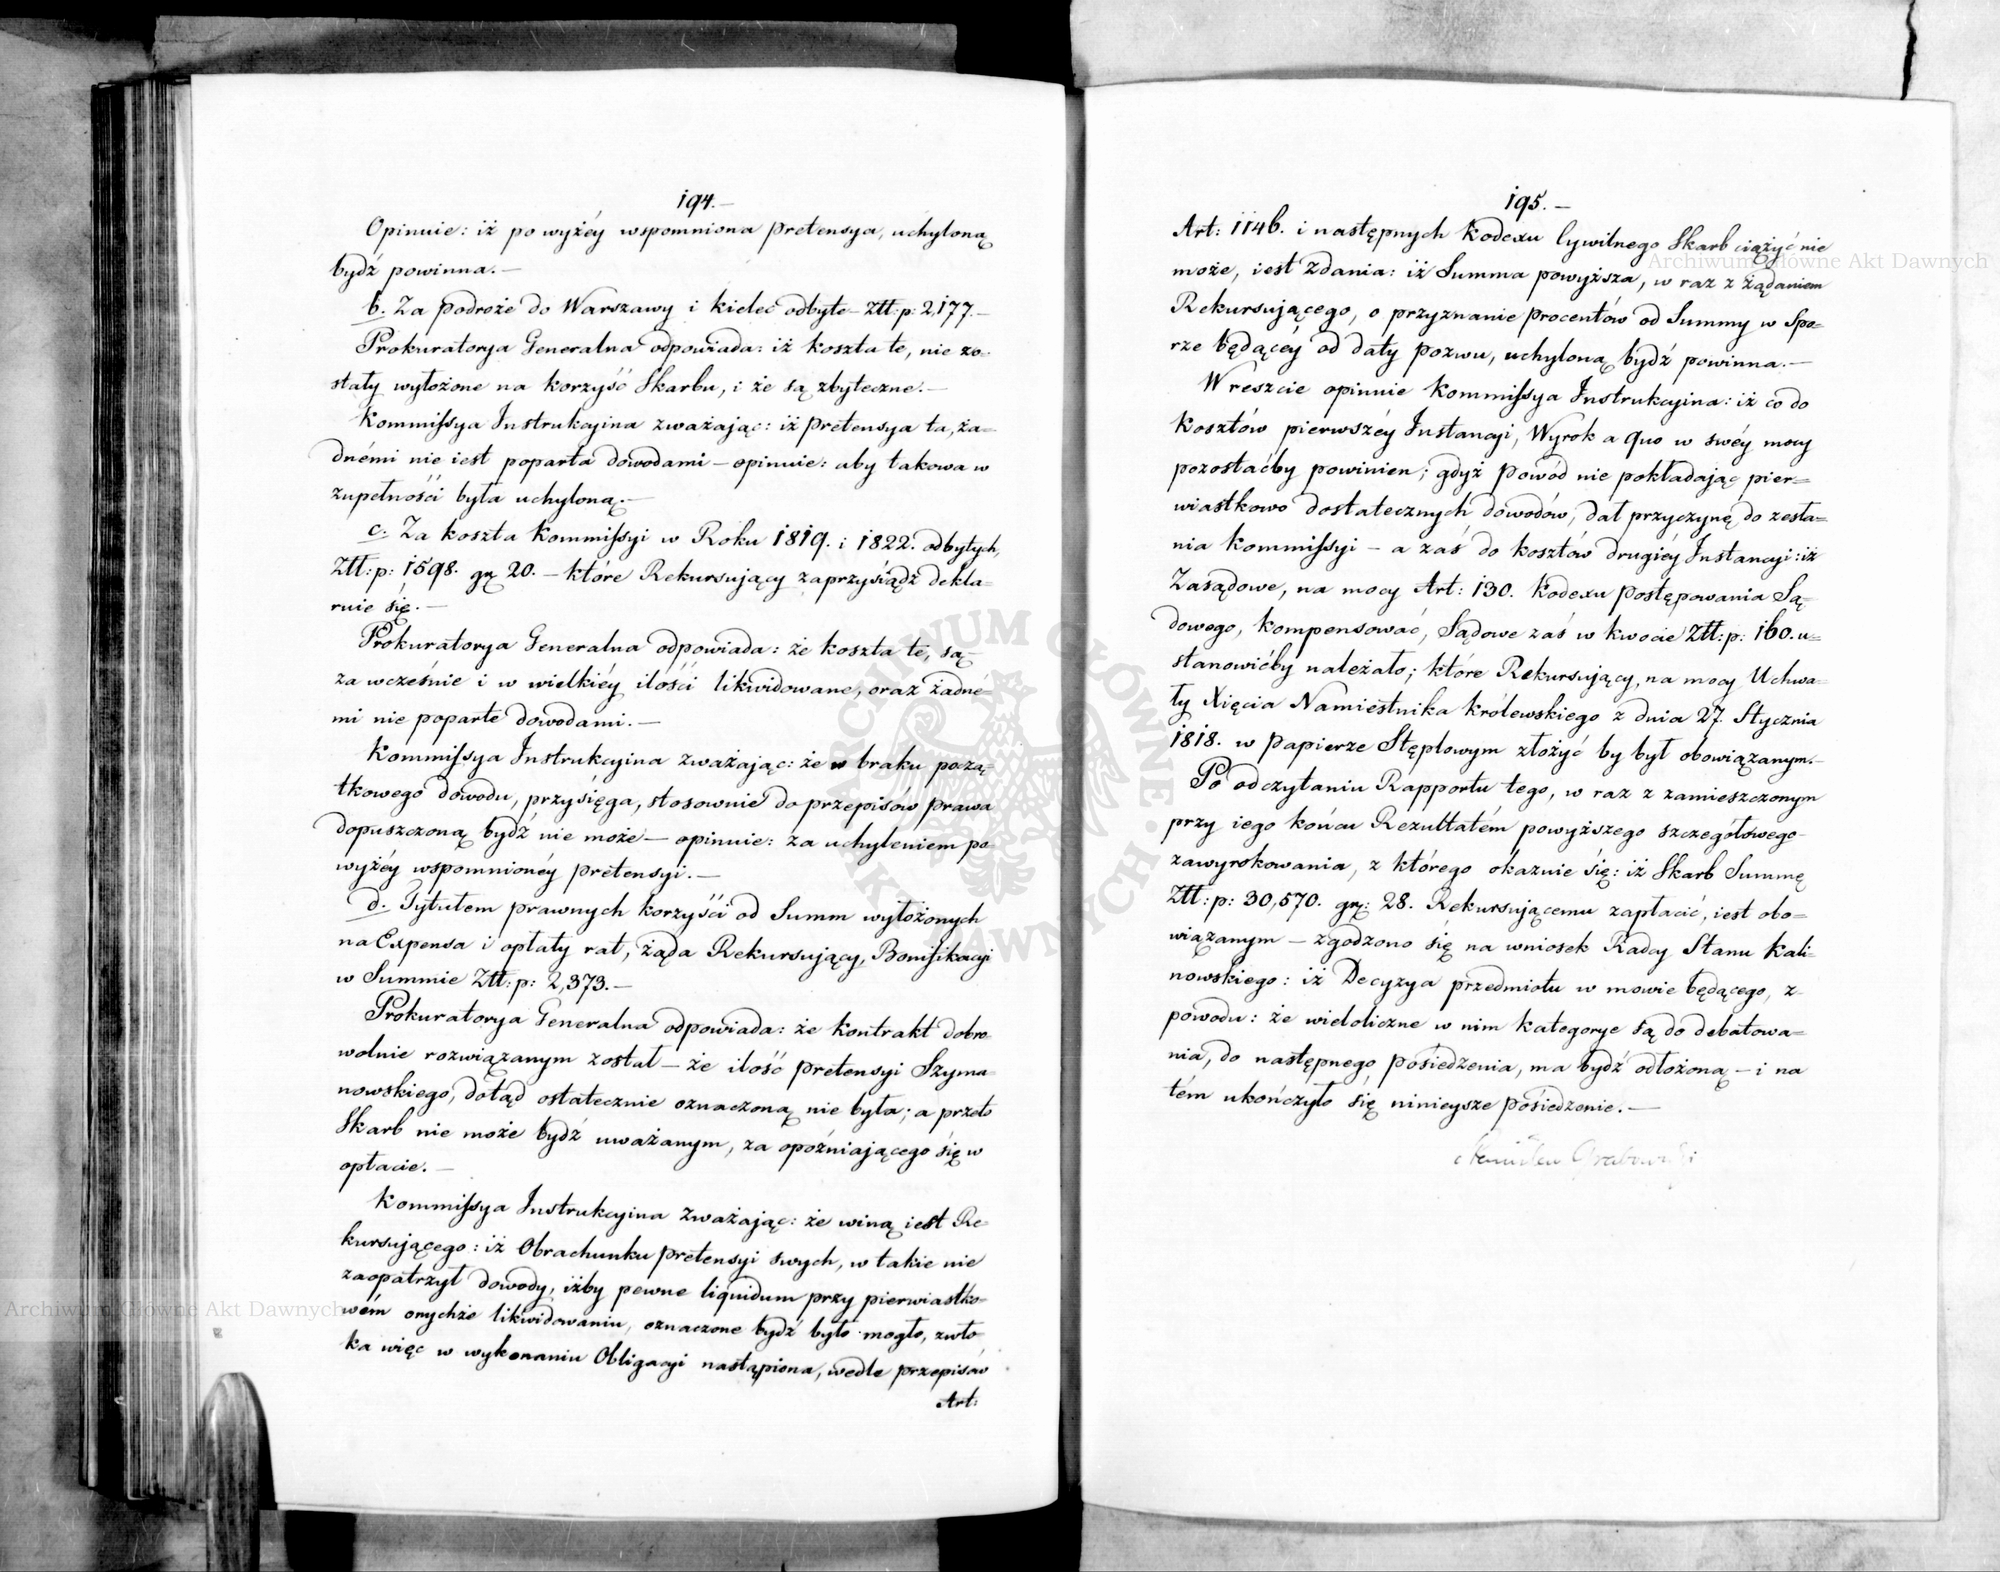 194.—
Opinuie: iż powyżéy wspomniona pretensya, uchyloną
bydź powinna.—
b. Za podroże do Warszawy i kielc odbyte— Ztt: p: 2,177.—
Prokuratorya Generalna odpowiada: iż koszta te, nie zo-
stały wyłożone na korzyść Skarbu, i że są zbyteczne.—
Kommissya Instrukcyina zważając: iż pretensya ta, ża-
dnémi nie iest poparta dowodami — opinuie: aby takowa w
zupełności była uchyloną.—
c. Za koszta Kommissyi w Roku 1819. i 1822. odbytych,
Ztt: p: 1598. gr 20. — które Rekursujący zaprzysiądz dekla-
ruie się.—
Prokuratorya Generalna odpowiada: że koszta te, są
za wcześnie i w wielkiéy ilości likwidowane, oraz żadné-
mi nie poparte dowodami.—
Kommissya Instrukcyina zważając: że w braku począ-
tkowego dowodu, przysięga, stosownie do przepisów prawa
dopuszczoną bydź nie może — opinuie: za uchyleniem po-
wyżéy wspomnionéy pretensyi.—
d. Tytułem prawnych korzyści od Summ wyłożonych
na Expensa i opłaty rat, żąda Rekursujący, Bonifikacyi
w Summie Ztt: p: 2,373.—
Prokuratorya Generalna odpowiada: że kontrakt dobro-
wolnie rozwiązanym został — że ilość pretensyi Szyma-
nowskiego, dotąd ostatecznie oznaczoną nie była; a przeto
Skarb nie może bydź uważanym, za opóźniającego się w
opłacie.—
Kommissya Instrukcyina zważając: że winą iest Re-
kursującego: iż Obrachunku pretensyi swych, w takie nie
zaopatrzył dowody, iżby pewne liquidum przy pierwiastko-
wém onychże likwidowaniu, oznaczone bydź było mogło, zwło-
ka więc w wykonaniu Obligacyi nastąpiona, wedle przepisów
Art:
195.—
Art: 1146. i następnych Kodexu Cywilnego Skarb ciążyć nie
może, iest zdania: iż Summa powyższa, w raz z żądaniem
Rekursującego, o przyznanie procentów od Summy w Spo-
rze będącéy od daty pozwu, uchyloną bydź powinna.—
Wreszcie opinuie Kommissya Instrukcyina: iż co do
Kosztów pierwszéy Instancyi, Wyrok a quo w swéy mocy
pozostaćby powinien; gdyż Powód nie pokładając pier-
wiastkowo dostatecznych dowodów, dał przyczynę do zesła-
nia Kommissyi — a zaś do kosztów drugiéy Instancyi: iż
Zasądowe, na mocy Art: 130. Kodexu Postępowania Są-
dowego, kompensować, Sądowe zaś w kwocie Ztt: p: 160. u-
stanowićby należało; które Rekursujący, na mocy Uchwa-
ły Xięcia Namiestnika królewskiego z dnia 27. Stycznia
1818. w Papierze Stęplowym złożyć by był obowiązanym.—
Po odczytaniu Rapportu tego, w raz z zamieszczonym
przy iego końcu Rezultatém powyższego szczegółowego
zawyrokowania, z którego okazuie się: iż Skarb Summę
Ztt: p: 30,570. gr: 28. Rekursującemu zapłacić, iest obo-
wiązanym — zgodzono się na wniosek Radcy Stanu Kali-
nowskiego: iż Decyzya przedmiotu w mowie będącego, z
powodu: że wieloliczne w nim kategorye są do debatowa-
nia, do następnego posiedzenia, ma bydź odłożoną — i na
tém ukończyło się ninieysze posiedzenie.—
Stanisław Grabowski
Archiwum Główne Akt Dawnych
Archiwum Główne Akt Dawnych
ARCHIWUM GŁÓWNE AKT DAWNYCH